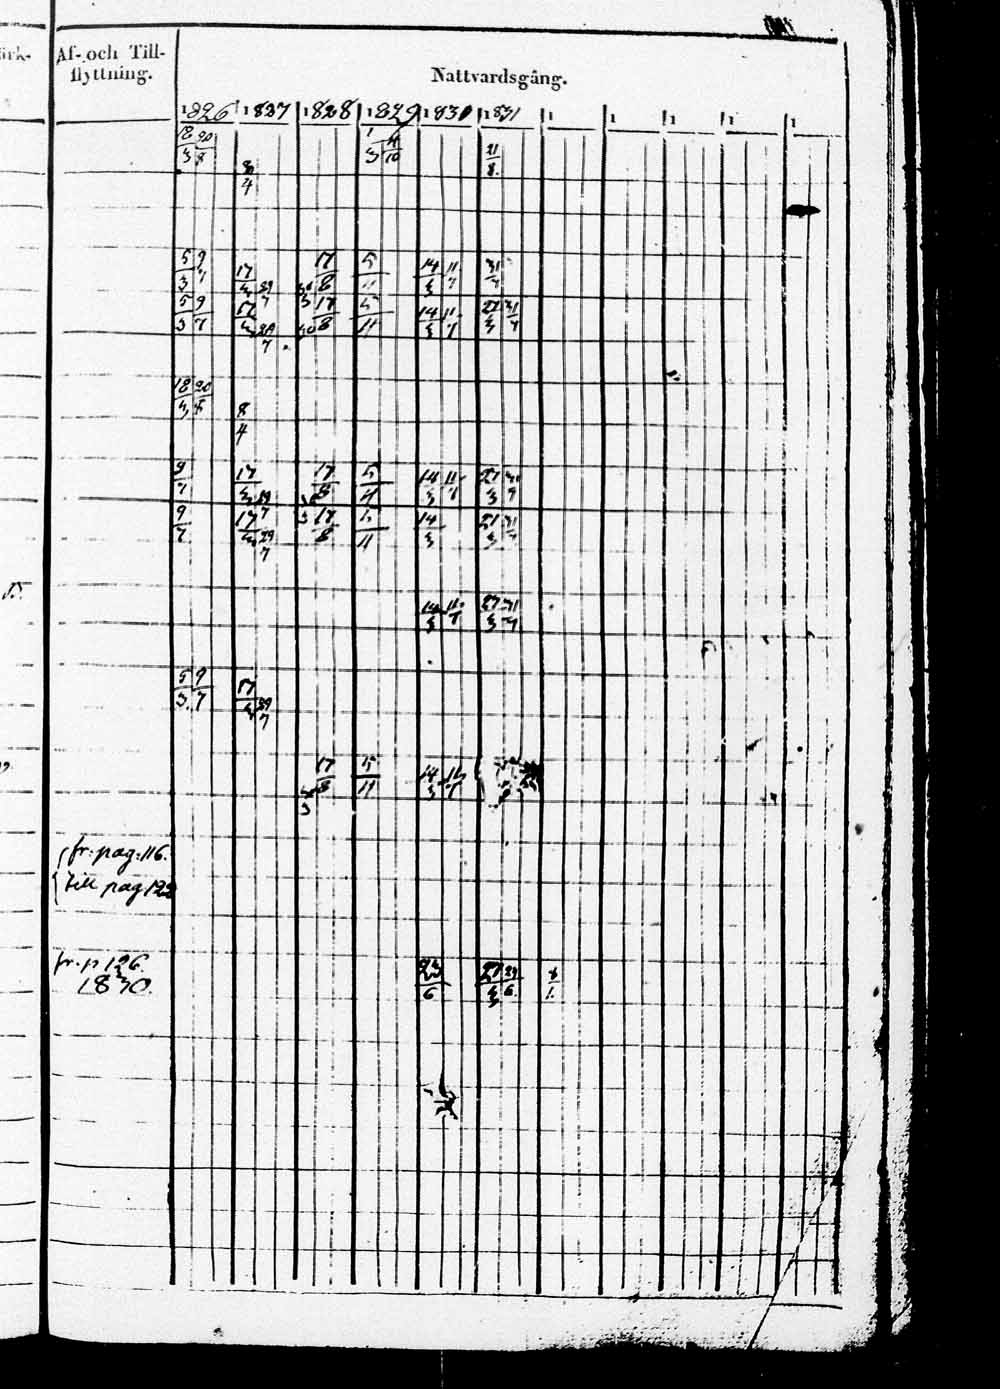 Af- och Till-
flyttning.
Nattvardsgång.
1826 1827 1828 1829 1830 1831 1 1 1 1 1
18/3 20/8 4/10 21/8
8/4
5/3 9/7 17/3 29/7 30/3 17/8 5/11 14/3 11/7 31/7
5/3 9/7 17/3 29/7 30/3 17/8 5/11 14/3 11/7 27/3 31/7
18/3 20/8
8/4
9/7 17/3 29/7 17/8 5/11 14/3 11/7 27/3
9/7 17/3 29/7 17/8 5/11 14/3 27/3 31/7
14/3 11/7 27/3 31/7
5/3 9/7 17/3 29/7
17/8 5/11 14/3 11/7
fr. pag. 116.
till pag 122
fr. p 126.
1830.
23/6 27/3 29/6 6/1